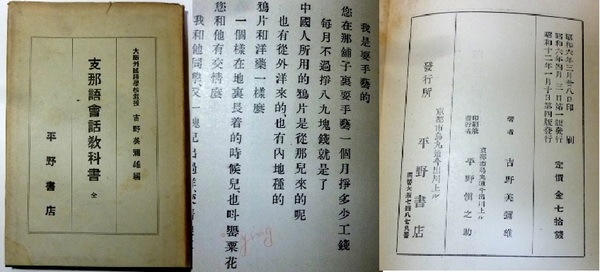 大阪外國語學校教授 吉野美彌雄編
支那語會話教科書 全
平野書店
我是耍手藝的
您在那鋪子裏耍手藝一個月掙多少工錢
每月不過掙八九塊錢就是了
中國人所用的鴉片是從那兒來的呢
也有從外洋來的,也有內地種的
鴉片和洋藥一樣麼
一個樣在地裏長着的時候兒,也呌罌粟花
您和他有交情麼
我和他同
昭和六年三月廿八日印刷
昭和六年四月三日第一版發行
昭和十二年一月十日第四版發行
定價 金七十錢
著者 吉野美彌雄
京都市烏丸通今出川上ル
平野
之助
發行所
京都市烏丸今出川上ル
平野書店